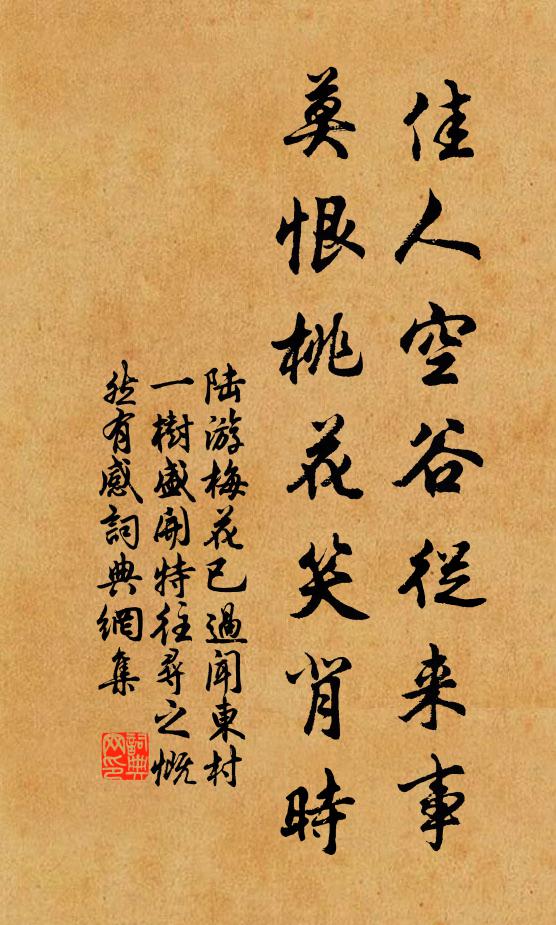 佳人空谷從来事
莫恨桃花笑背時
陆游梅花已過闻東村
一樹盛開特往尋之慨
然有感詞典網集
詞典
网印